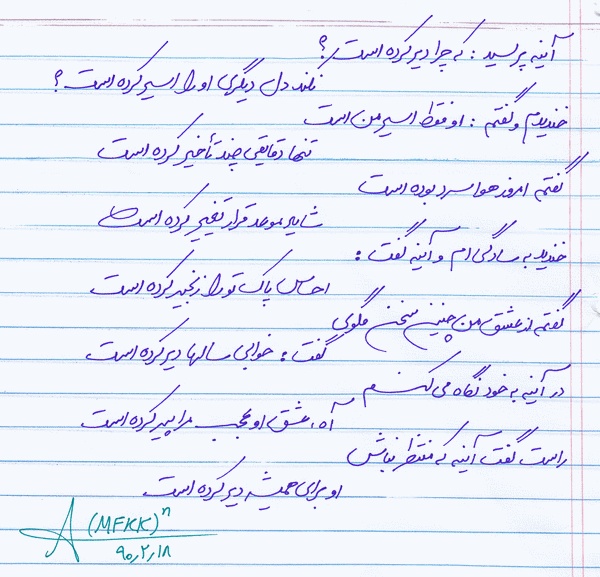 آینه پرسید : که چرا دیر کرده است ؟
نکند دل دیگری او را اسیر کرده است ؟
خندیدم و گفتم : او فقط اسیر من است
تنها دقایقی چند تأخیر کرده است
گفتم امروز هوا سرد بوده است
شاید موعد قرار تغییر کرده است
خندید به سادگی ام و آینه گفت :
احساس پاک تو را زنجیر کرده است
گفتم از عشق من چنین سخن مگوی
گفت : خوابی سالها دیر کرده است
در آینه به خود نگاه می کنم
آه ، عشق او عجب مرا پیر کرده است
راست گفت آینه که منتظر نباش
او برای همیشه دیر کرده است
(MFKK)ⁿ
۹۰٫۲٫۱۸